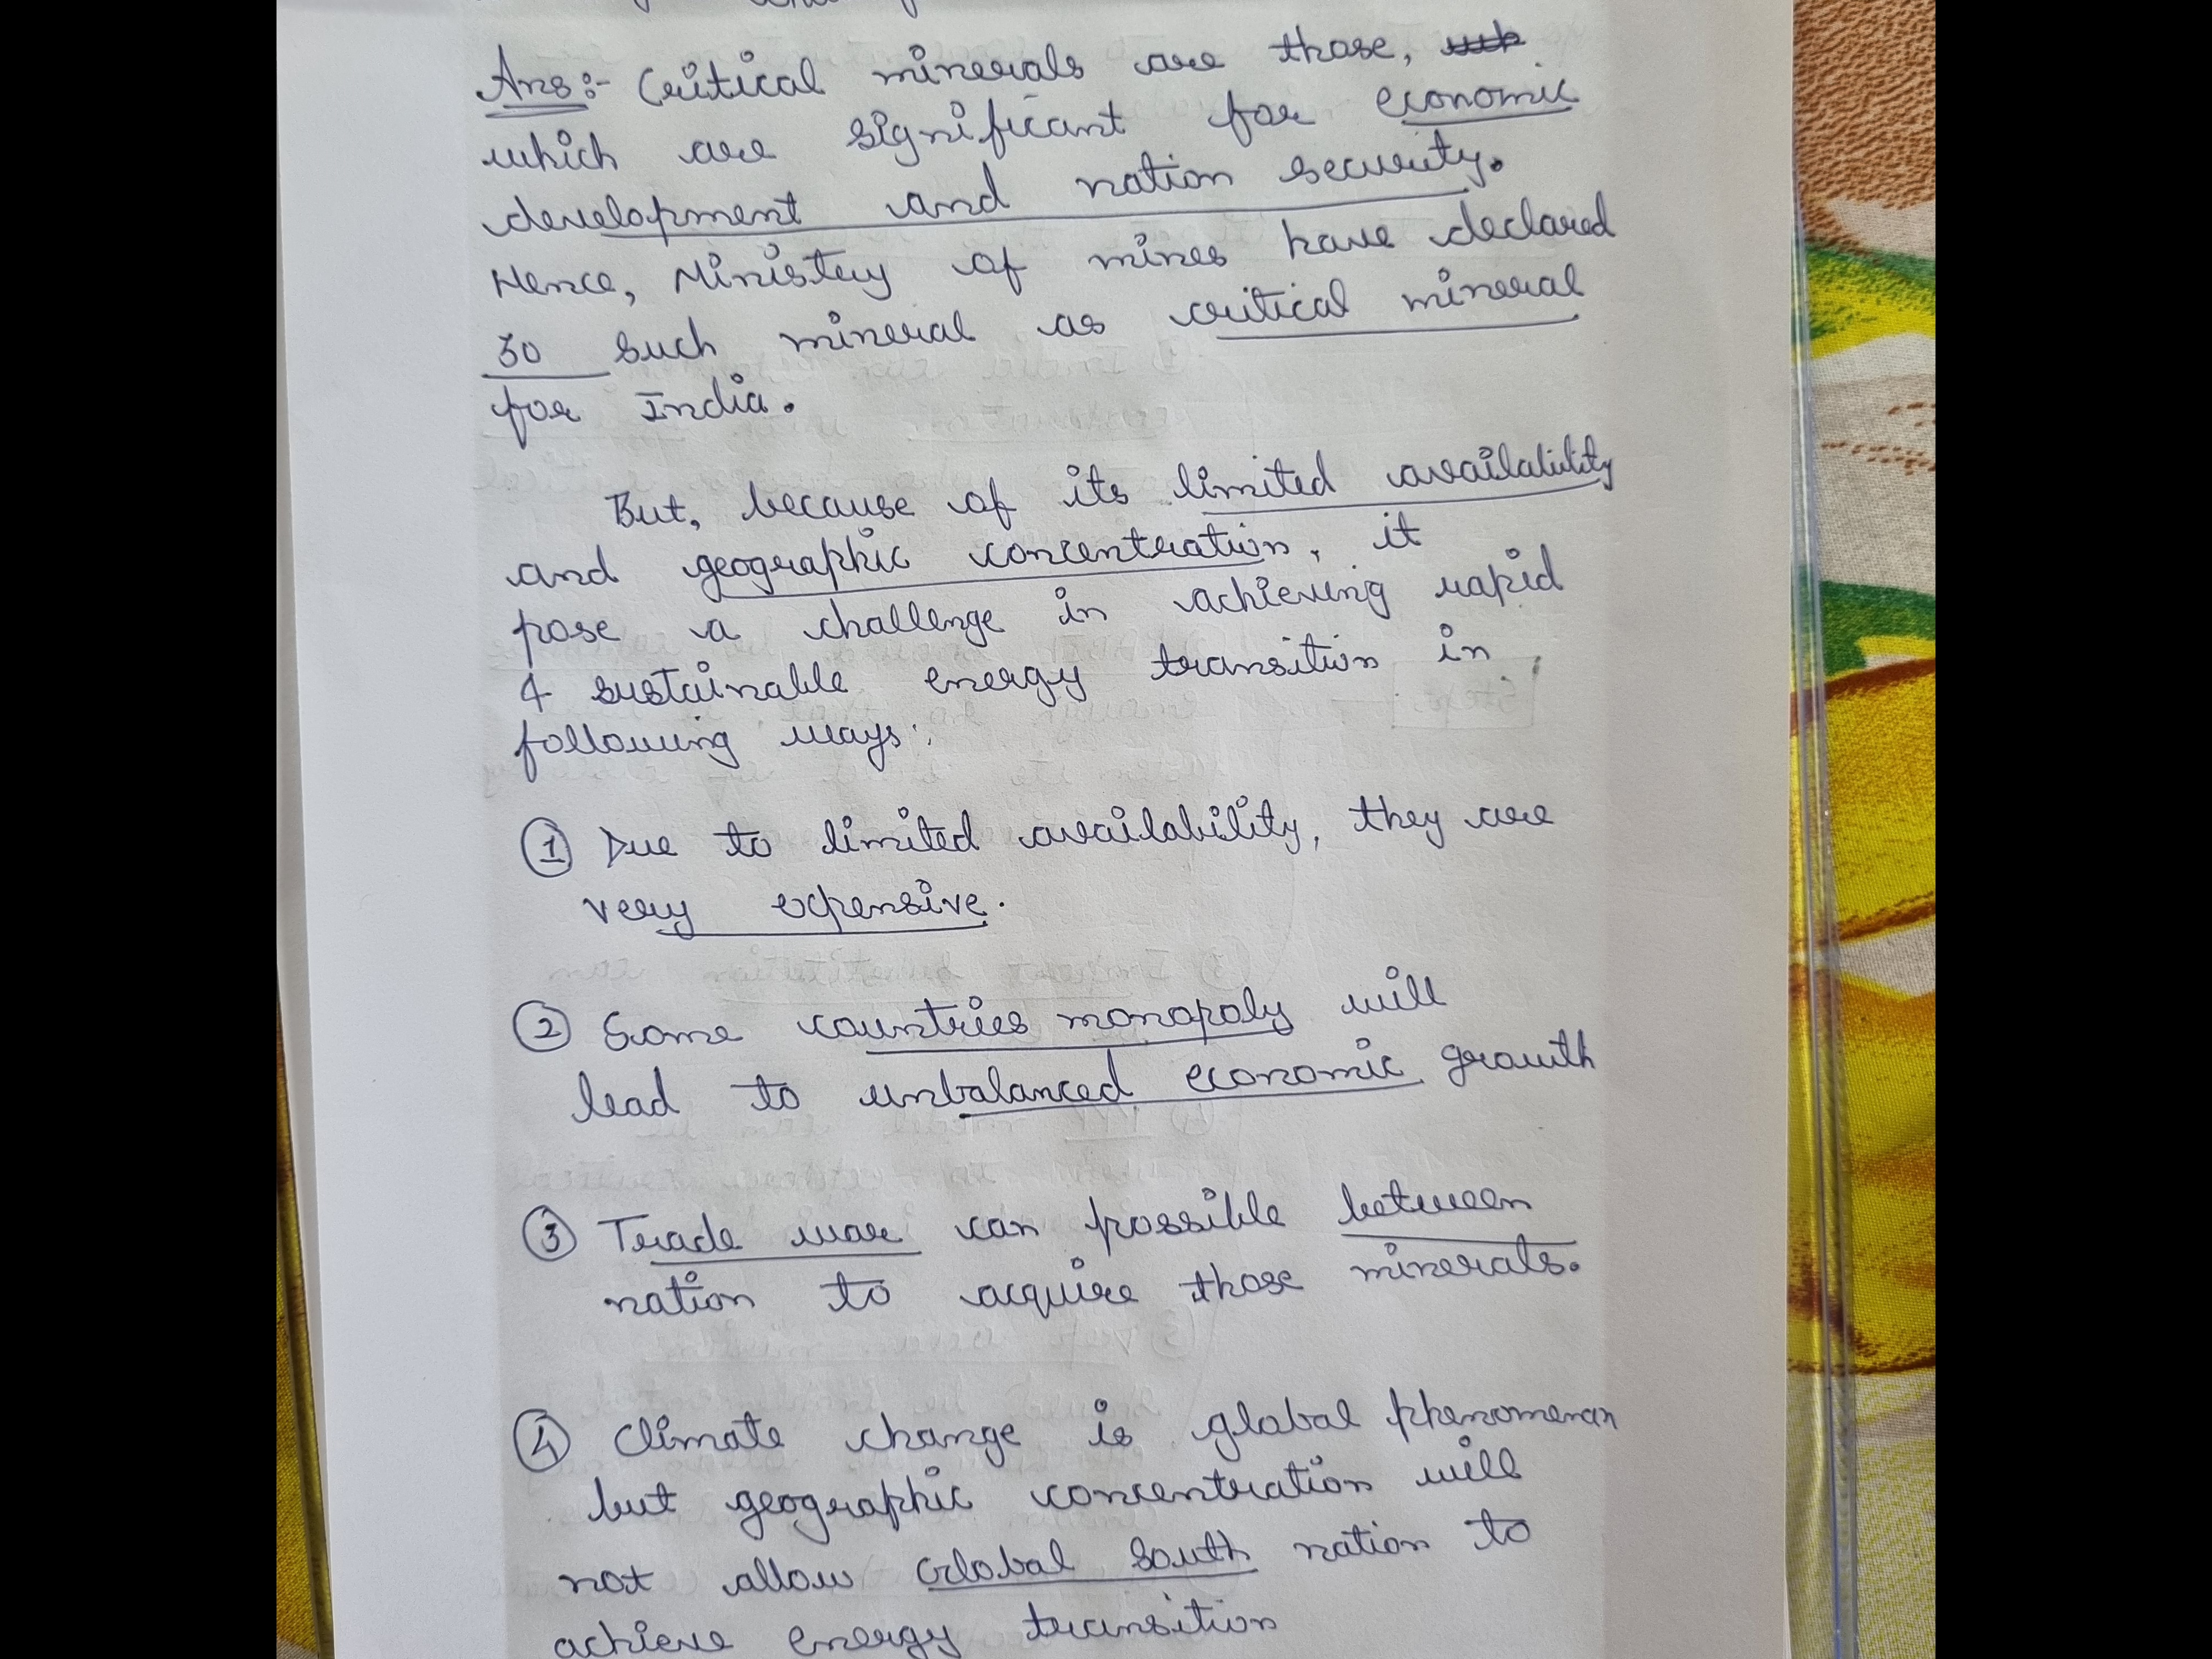 Ans:- Critical minerals are those,
which are significant for economic
development and nation security.
Hence, Ministry of mines have declared
30 such mineral as critical mineral
for India.
But, because of its limited availability
and geographic concentration, it
pose a challenge in achieving rapid
& sustainable energy transition in
following ways:
① Due to limited availability, they are
very expensive.
② Some countries monopoly will
lead to unbalanced economic growth
③ Trade war can possible between
nation to acquire those minerals.
④ Climate change is global phenomenon
but geographic concentration will
not allow Global South nation to
achieve energy transition